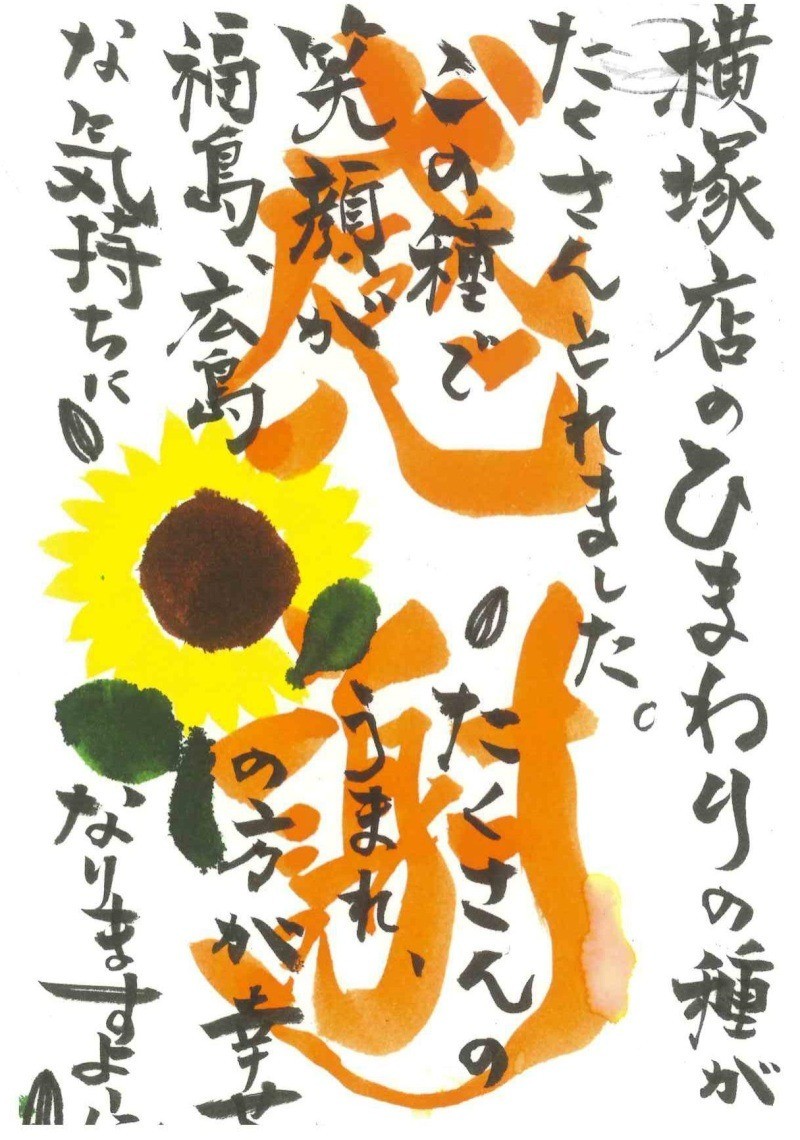 横塚店のひまわりの種が
たくさんとれました。
この種でたくさんの
笑顔がうまれ、
福島、広島の方が幸せ
な気持ちになりますよう
感謝